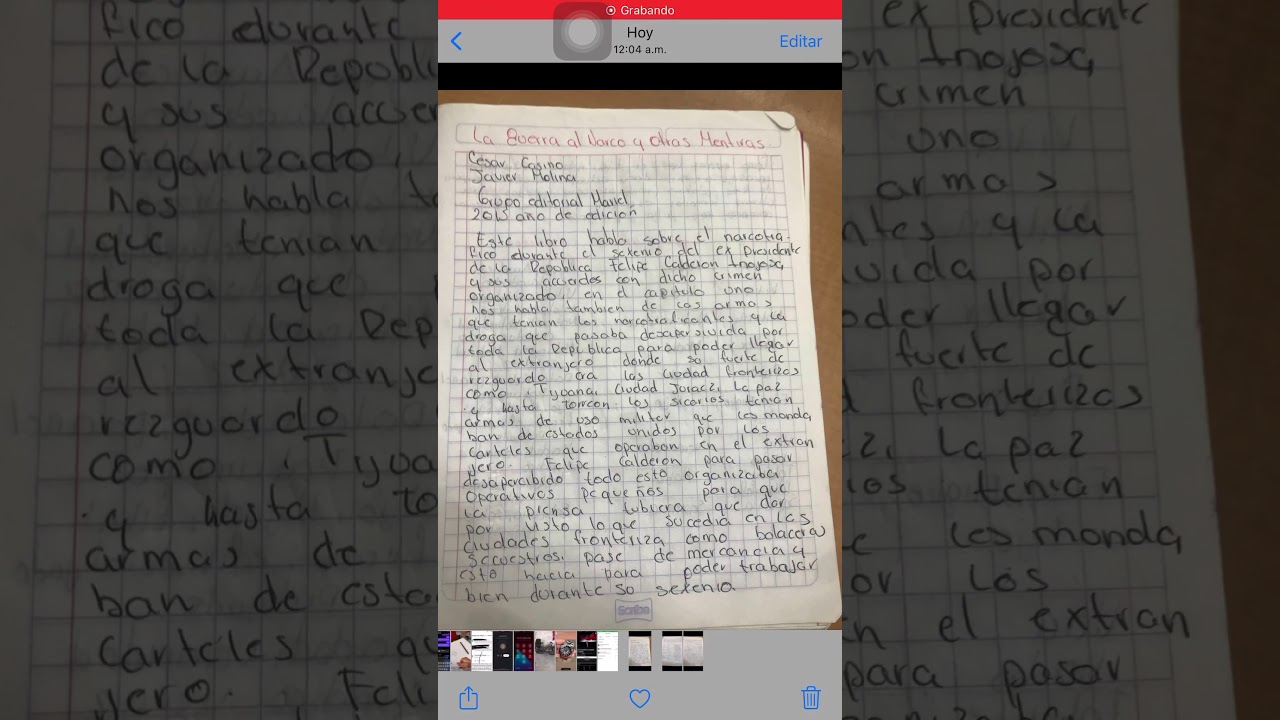 Grabando
Hoy
12:04 a.m.
Editar
La Guerra al Narco y otras Mentiras
Cesar Casino
Javier Molina
Grupo editorial
2013 año de edición
Este libro habla sobre el narcotra-
fico durante el sexenio del ex Presidente
de la Republica Felipe Calderon Inojoza,
y sus acuerdos con dicho crimen
organizado, en el capitulo uno
nos habla tambien de las armas
que tenian los narcotraficantes y la
droga que pasaba desapersivida por
toda la Republica para poder llegar
al extranjero donde so fuerte de
rezguardo era las ciudad fronterizas
como Tyoana, Ciudad Juarez, La paz
y hasta torreon los sicarios tenian
armas de uso militer que les monda
ban de estados unidos por los
carteles que operaban en el extran
jero. Felipe Calderon para pasar
desaparcibido todo esto organizaba
Operativos pequeños para que
la prensa tubiera que dar
por visto lo que sucedia en las
ciudades fronteriza como balacera
secuestros, pase de mercancia y
esto hacia para poder trabajar
bien durante so sexenio.
Scribe